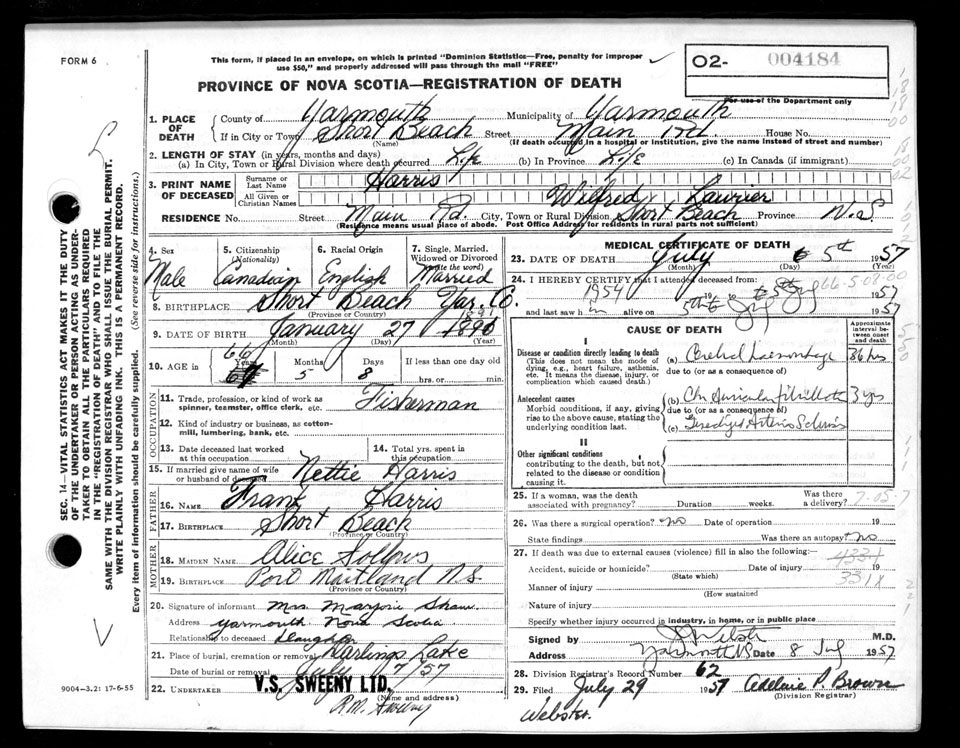 FORM 6
This form, if placed in an envelope, on which is printed "Dominion Statistics—Free, penalty for improper
use $50," and properly addressed will pass through the mail "FREE"
PROVINCE OF NOVA SCOTIA—REGISTRATION OF DEATH
O2- 004184
For use of the Department only
1. PLACE OF DEATH
County of Yarmouth Municipality of Yarmouth
If in City or Town Short Beach Street Main Rd. House No.
(Name) (If death occurred in a hospital or institution, give the name instead of street and number)
2. LENGTH OF STAY (in years, months and days)
(a) In City, Town or Rural Division where death occurred Life (b) In Province Life (c) In Canada (if immigrant)
3. PRINT NAME OF DECEASED
Surname or Last Name Harris
All Given or Christian Names Wilfred Laurier
RESIDENCE No. Street Main Rd. City, Town or Rural Division Short Beach Province N.S.
(Residence means usual place of abode. Post Office Address for residents in rural parts not sufficient)
4. Sex 5. Citizenship (Nationality) 6. Racial Origin 7. Single, Married, Widowed or Divorced (Write the word)
Male Canadian English Married
8. BIRTHPLACE Short Beach Yar. Co.
(Province or Country)
1891
9. DATE OF BIRTH January 27 1890
(Month) (Day) (Year)
10. AGE in 66 Years 5 Months 8 Days If less than one day old
hrs. or min.
OCCUPATION
11. Trade, profession, or kind of work as
spinner, teamster, office clerk, etc. Fisherman
12. Kind of industry or business, as cotton-
mill, lumbering, bank, etc.
13. Date deceased last worked at this occupation
14. Total yrs. spent in this occupation
15. If married give name of wife
or husband of deceased Nettie Harris
FATHER
16. NAME Frank Harris
17. BIRTHPLACE Short Beach
(Province or Country)
MOTHER
18. MAIDEN NAME Alice
19. BIRTHPLACE Port Maitland N.S.
(Province or Country)
20. Signature of informant Mrs. Marjorie Shaw
Address Yarmouth Nova Scotia
Relationship to deceased Daughter
21. Place of burial, cremation or removal Darlings Lake
Date of burial or removal July 7/57
22. UNDERTAKER V.S. SWEENY LTD.
(Name and address)
R.M. Sweeny
9004-3.21 17-6-55
SEC. 14—VITAL STATISTICS ACT MAKES IT THE DUTY
OF THE UNDERTAKER OR PERSON ACTING AS UNDER-
TAKER TO OBTAIN ALL THE PARTICULARS REQUIRED
IN THE "REGISTRATION OF DEATH" AND TO FILE THE
SAME WITH THE DIVISION REGISTRAR WHO SHALL ISSUE THE BURIAL PERMIT.
WRITE PLAINLY WITH UNFADING INK. THIS IS A PERMANENT RECORD.
Every item of information should be carefully supplied. (See reverse side for instructions.)
MEDICAL CERTIFICATE OF DEATH
23. DATE OF DEATH July 5th 1957
(Month) (Day) (Year)
24. I HEREBY CERTIFY that I attended deceased from:
1954 19 to 5 July 1957
and last saw him alive on 5th July 1957
CAUSE OF DEATH
Approximate interval between onset and death
I
Disease or condition directly leading to death
(This does not mean the mode of
dying, e.g., heart failure, asthenia,
etc. It means the disease, injury, or
complication which caused death.)
(a) Cerebral Haemorrhage 36 hrs
due to (or as a consequence of)
Antecedent causes
Morbid conditions, if any, giving
rise to the above cause, stating the
underlying condition last.
(b) Chr Auricular fibrillation 3 yrs
due to (or as a consequence of)
(c) Generalized Arterio Sclerosis
II
Other significant conditions
contributing to the death, but not
related to the disease or condition
causing it.
25. If a woman, was the death
associated with pregnancy? Duration weeks. Was there a delivery?
26. Was there a surgical operation? no Date of operation 19
State findings Was there an autopsy? no
27. If death was due to external causes (violence) fill in also the following:—
Accident, suicide or homicide? Date of injury 19
(State which)
4331
331X
Manner of injury
(How sustained)
Nature of injury
Specify whether injury occurred in industry, in home, or in public place
Signed by Webster M.D.
Address Yarmouth NS Date 8 July 1957
28. Division Registrar's Record Number 62
29. Filed July 29 1957 Adelaie P. Brown
(Division Registrar)
Webster.